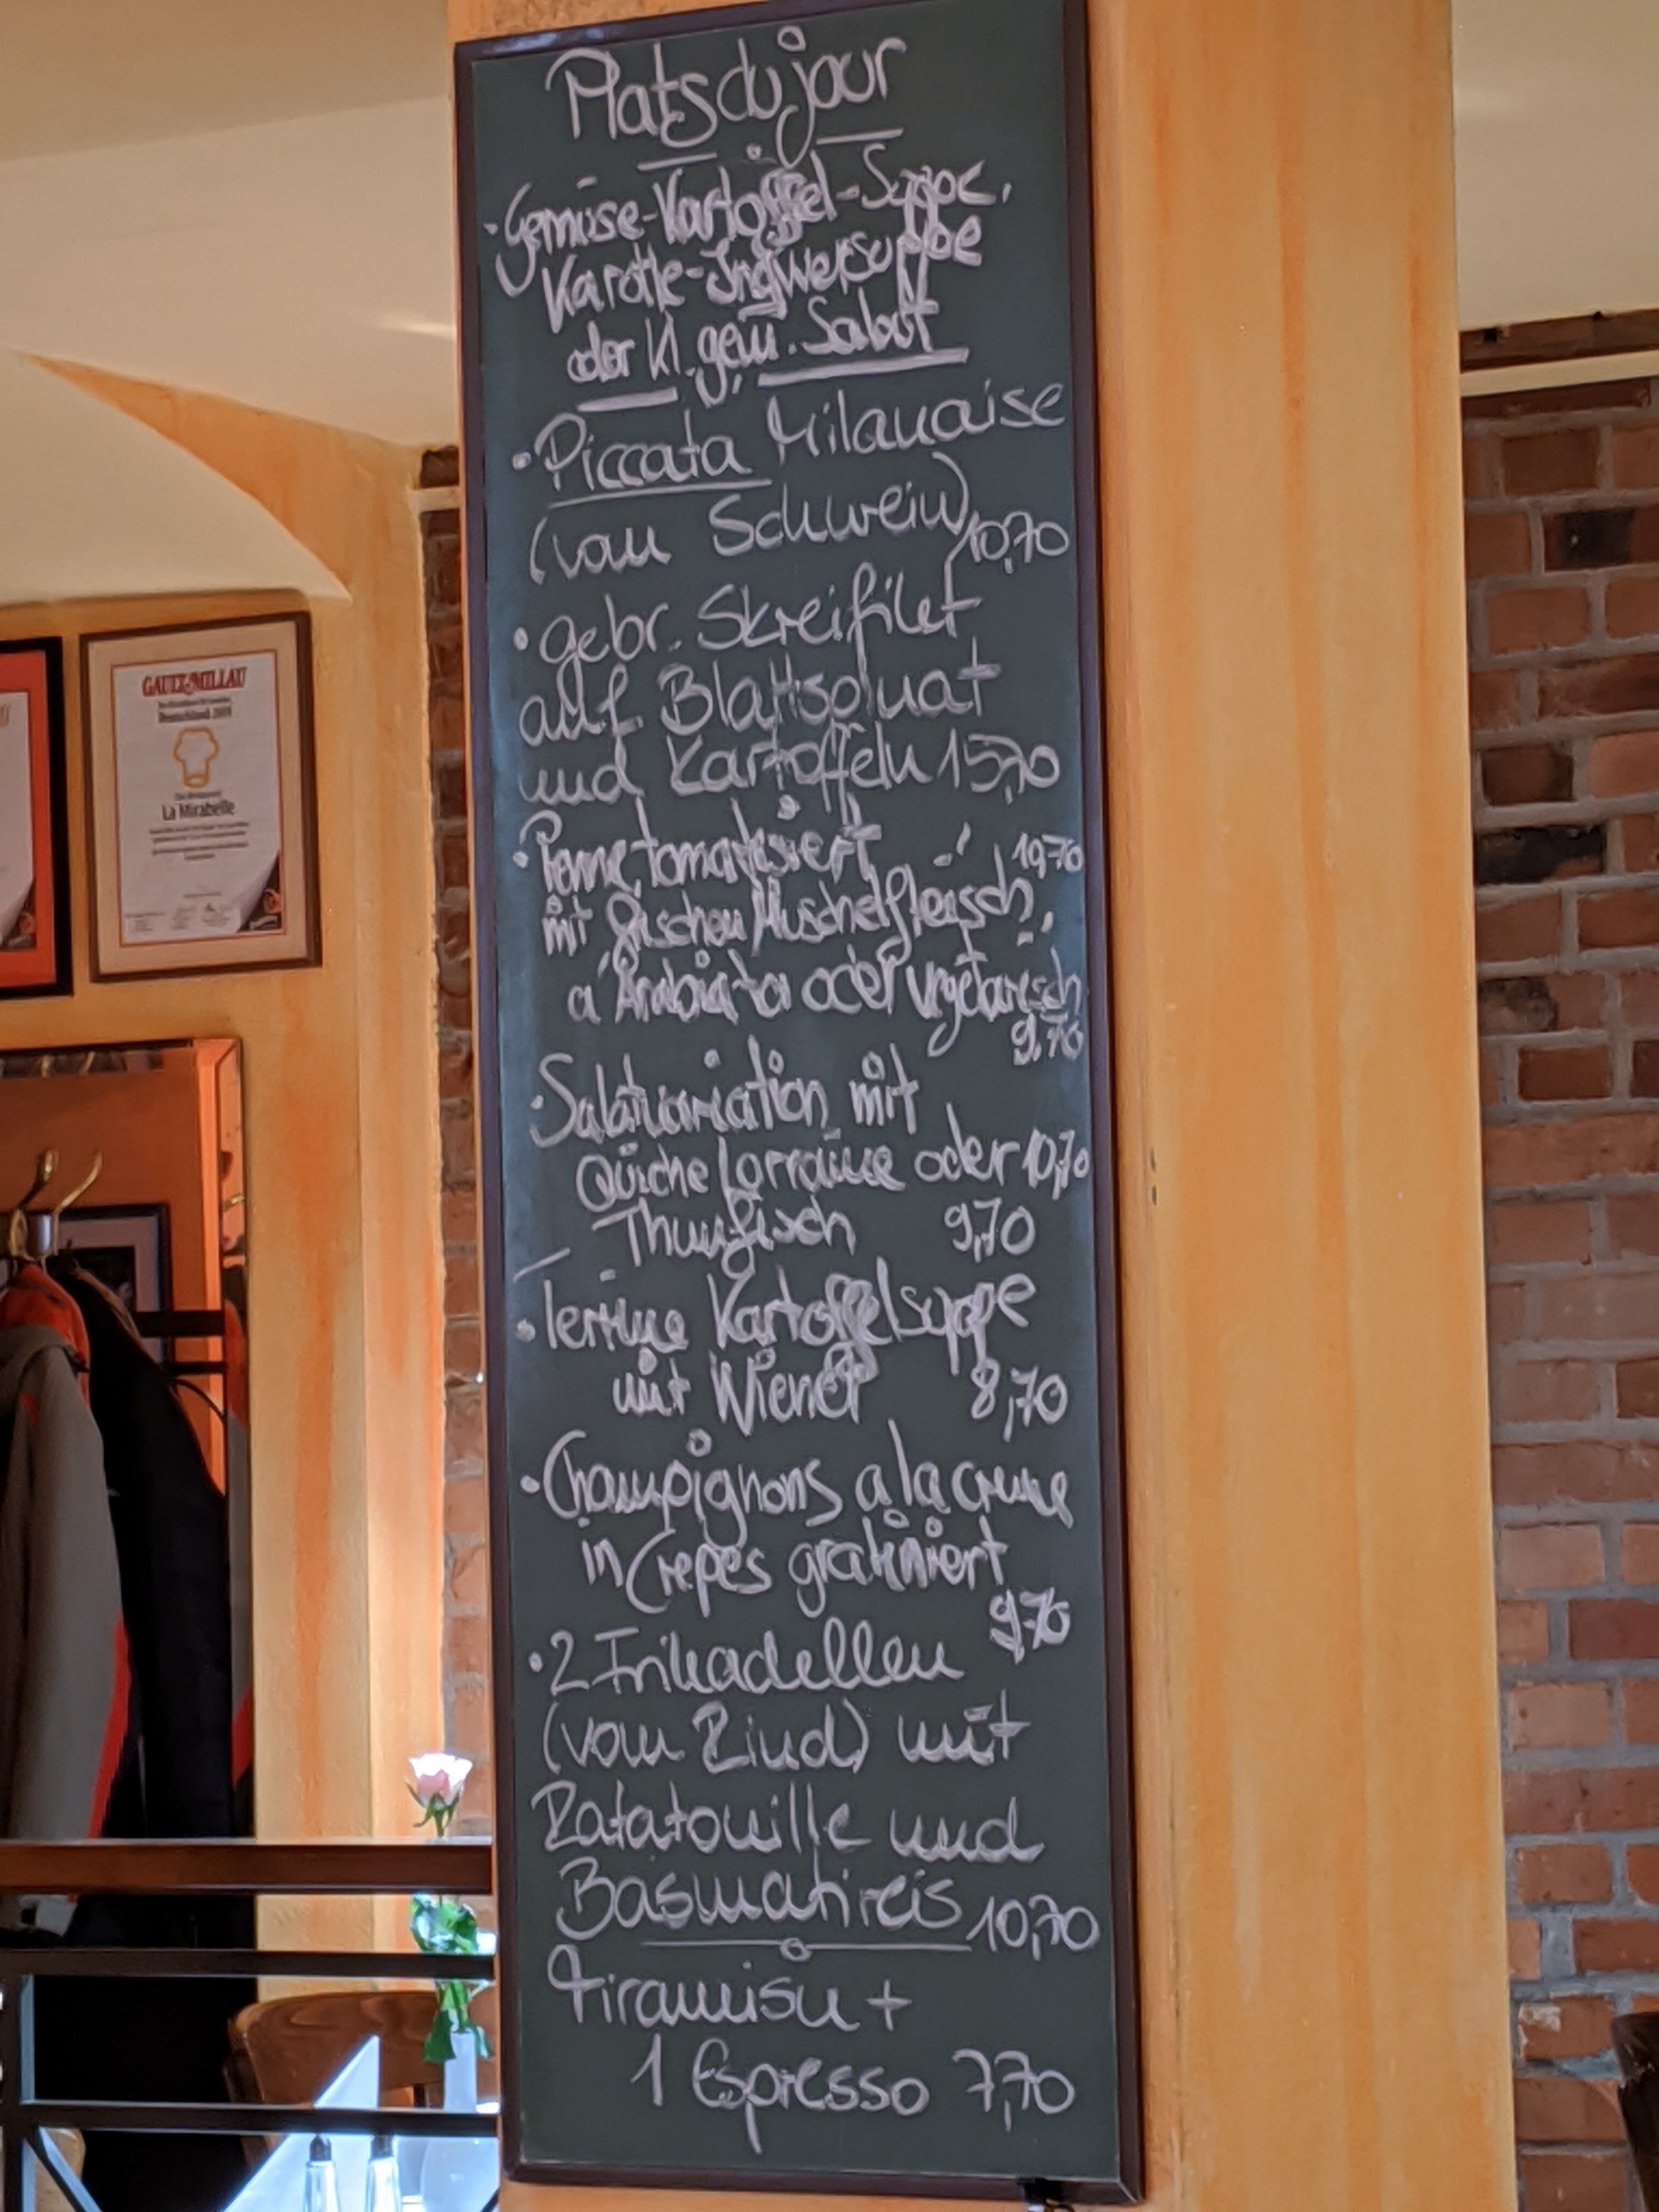 Plats du jour
· Gemüse-Kartoffel-Suppe,
Karotte-Ingwersuppe
oder kl. gem. Salat
· Piccata Milanaise
(vom Schwein) 10,70
· gebr. Skreifilet
auf Blattspinat
und Kartoffeln 15,70
· Penne, tomatisiert
mit frischem Muschelfleisch, 10,70
a'Arabiata oder vegetarisch
9,70
· Salatvariation mit
Quiche Lorraine oder 10,70
Thunfisch 9,70
· Terrine Kartoffelsuppe
mit Wiener 8,70
· Champignons a la creme
in Crepes gratiniert
9,70
· 2 Frikadellen
(vom Rind) mit
Ratatouille und
Basmatireis 10,70
Tiramisu +
1 Espresso 7,70
GAULT MILLAU
Deutschland
La Mirabelle